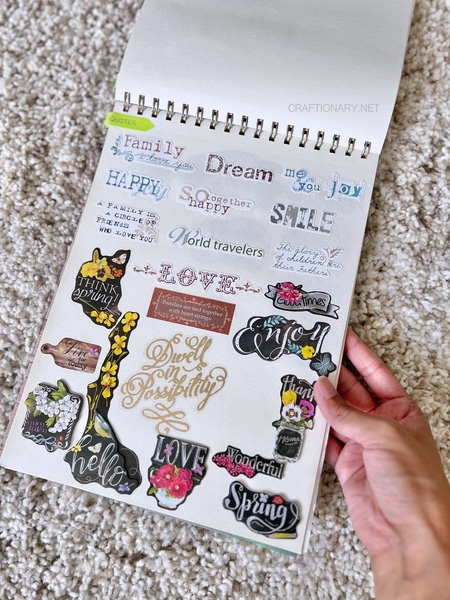 CRAFTIONARY.NET
QUOTES
Family
i love you
Dream
me & you
Joy
HAPPY
So together
happy
SMILE
A FAMILY IS
A CIRCLE OF
FRIENDS
WHO LOVE YOU
World travelers
The glory
of children are
their fathers
LOVE
THINK
Spring!
Families are tied together
with heart strings
Good times
enjoy
Dwell
in
Possibility
Live
thank
hello
LOVE
Wonderful
Spring